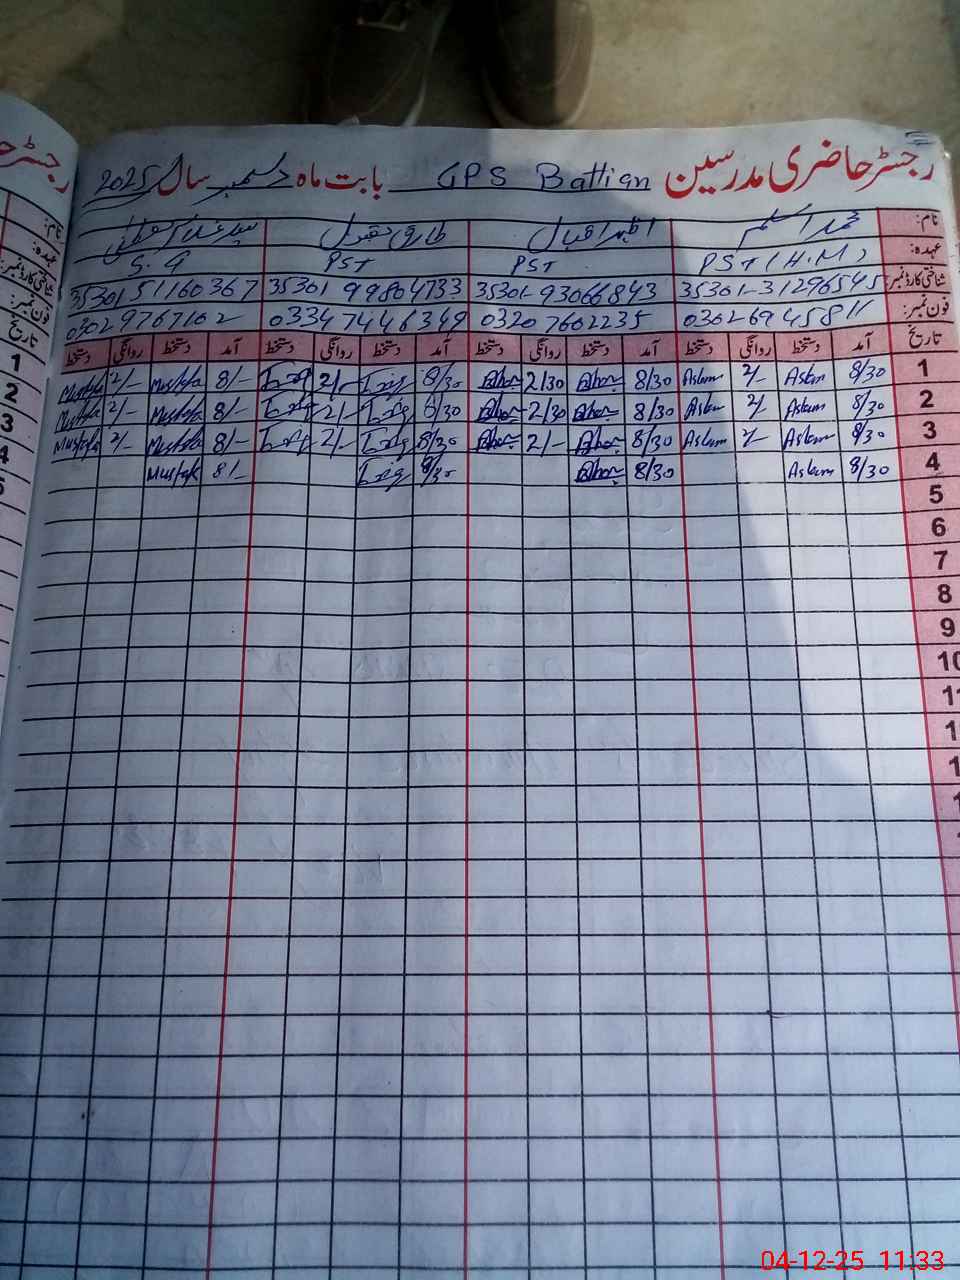 رجسٹر حاضری مدرسین GPS Battian بابت ماہ دسمبر سال 2025
نام: محمد اسلم اظہر اقبال طارق مقبول
عہدہ: PST (H.M) PST PST S.G
شناختی کارڈ نمبر: 35301-31296545 35301-93066843 35301 99804733 35301 51160367
فون نمبر: 0302 6945811 0320 7602235 0334 7446349 0302 9767102
تاریخ آمد دستخط روانگی دستخط آمد دستخط روانگی دستخط آمد دستخط روانگی دستخط آمد دستخط روانگی دستخط
1 8/30 Aslam 2/- Aslam 8/30 2/30 8/30 2/- 8/- Mustafa 2/- Mustafa
2 8/30 Aslam 2/- Aslam 8/30 2/30 8/30 2/- 8/- Mustafa 2/- Mustafa
3 8/30 Aslam 2/- Aslam 8/30 2/- 8/30 2/- 8/- Mustafa 2/- Mustafa
4 8/30 Aslam 8/30 8/30 8/- Mustafa
5
6
7
8
9
10
11
04-12-25 11:33